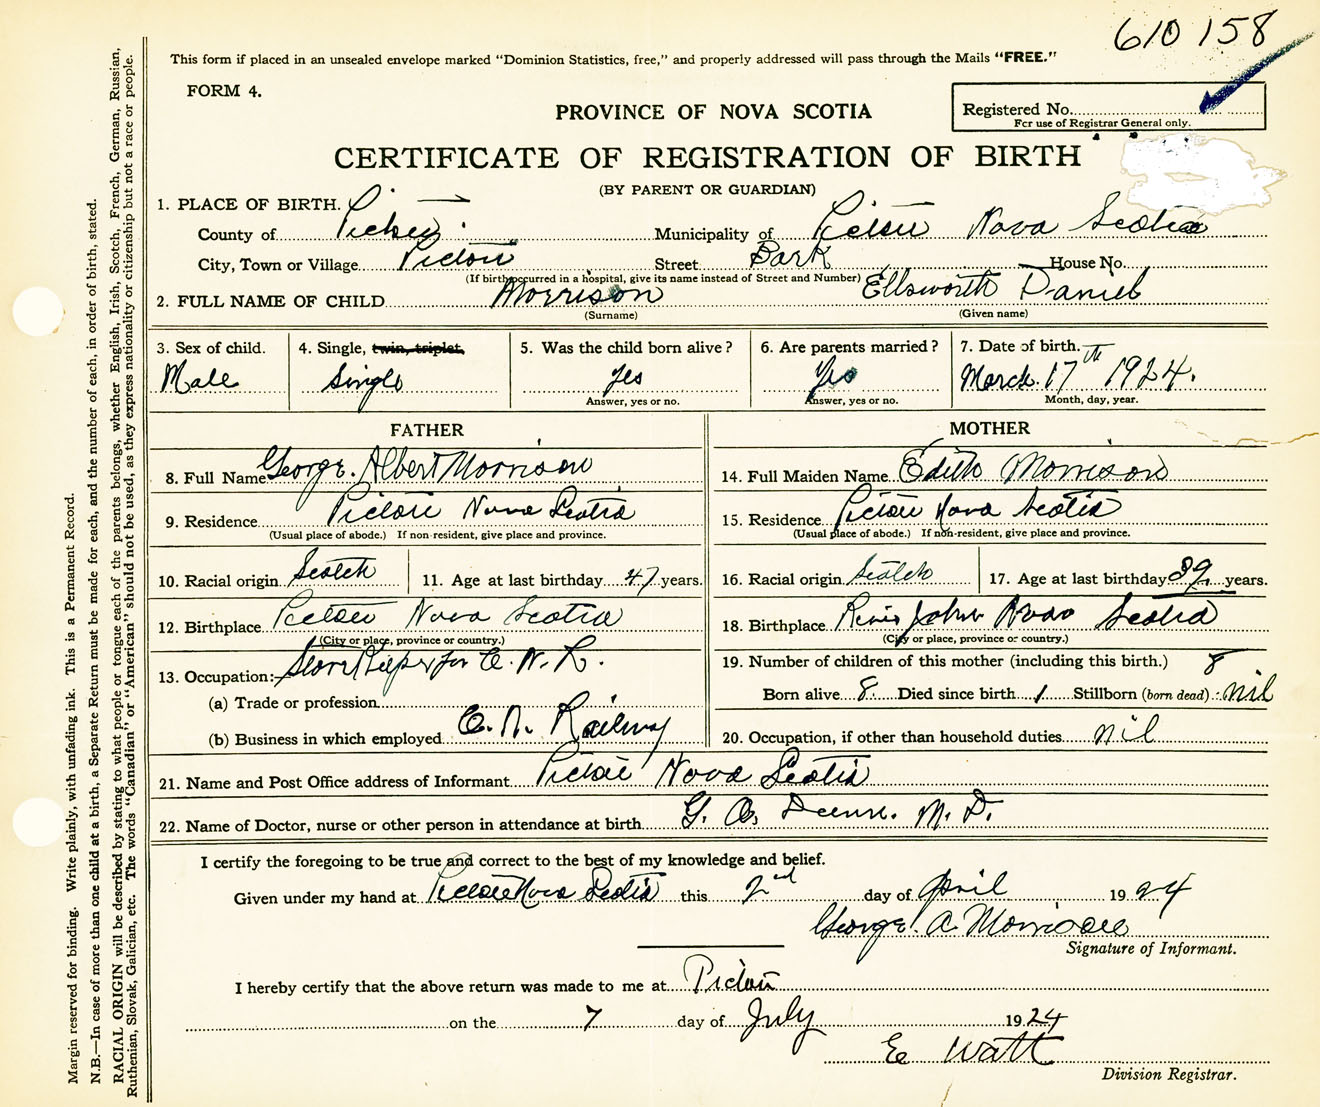 610 158
This form if placed in an unsealed envelope marked "Dominion Statistics, free," and properly addressed will pass through the Mails "FREE."
FORM 4.
PROVINCE OF NOVA SCOTIA
Registered No.
For use of Registrar General only.
CERTIFICATE OF REGISTRATION OF BIRTH
(BY PARENT OR GUARDIAN)
1. PLACE OF BIRTH.
County of Pictou Municipality of Pictou Nova Scotia
City, Town or Village Pictou Street Bark House No.
(If birth occurred in a hospital, give its name instead of Street and Number)
2. FULL NAME OF CHILD Morrison Ellsworth Daniel
(Surname) (Given name)
3. Sex of child. 4. Single, twin, triplet, 5. Was the child born alive? 6. Are parents married? 7. Date of birth.
Male Single Yes Yes March 17th 1924.
Answer, yes or no. Answer, yes or no. Month, day, year.
FATHER MOTHER
8. Full Name George. Albert Morrison 14. Full Maiden Name Edith Morrison
9. Residence Pictou Nova Scotia 15. Residence Pictou Nova Scotia
(Usual place of abode.) If non-resident, give place and province. (Usual place of abode.) If non-resident, give place and province.
10. Racial origin Scotch 11. Age at last birthday 47 years. 16. Racial origin Scotch 17. Age at last birthday 39 years.
12. Birthplace Pictou Nova Scotia 18. Birthplace River John Nova Scotia
(City or place, province or country.) (City or place, province or country.)
13. Occupation:- Storekeeper for C. N. R. 19. Number of children of this mother (including this birth.) 8
(a) Trade or profession Born alive 8 Died since birth 1 Stillborn (born dead) nil
(b) Business in which employed C. N. Railway 20. Occupation, if other than household duties nil
21. Name and Post Office address of Informant Pictou Nova Scotia
22. Name of Doctor, nurse or other person in attendance at birth G. A. M. D.
I certify the foregoing to be true and correct to the best of my knowledge and belief.
Given under my hand at Pictou Nova Scotia this 2nd day of April 1924
George. A. Morrison
Signature of Informant.
I hereby certify that the above return was made to me at Pictou
on the 7 day of July 1924
E Watt
Division Registrar.
Margin reserved for binding. Write plainly, with unfading ink. This is a Permanent Record.
N.B.—In case of more than one child at a birth, a Separate Return must be made for each, and the number of each, in order of birth, stated.
RACIAL ORIGIN will be described by stating to what people or tongue each of the parents belongs, whether English, Irish, Scotch, French, German, Russian,
Ruthenian, Slovak, Galician, etc. The words "Canadian" or "American" should not be used, as they express nationality or citizenship but not a race or people.